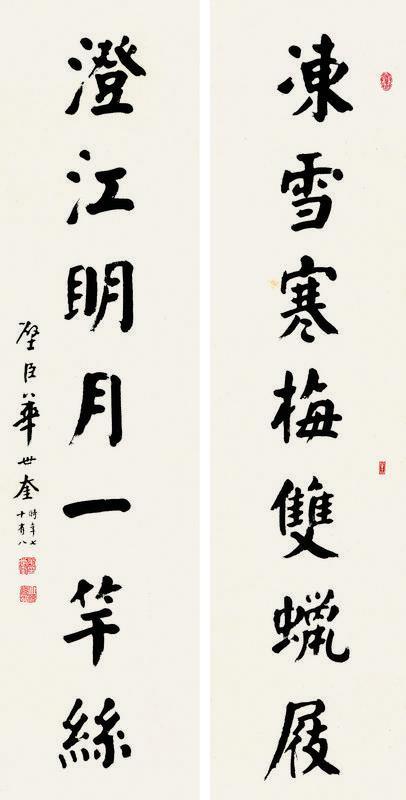 凍雪寒梅雙蠟屐
澄江明月一竿絲
璧臣華世奎
時年七
十有八